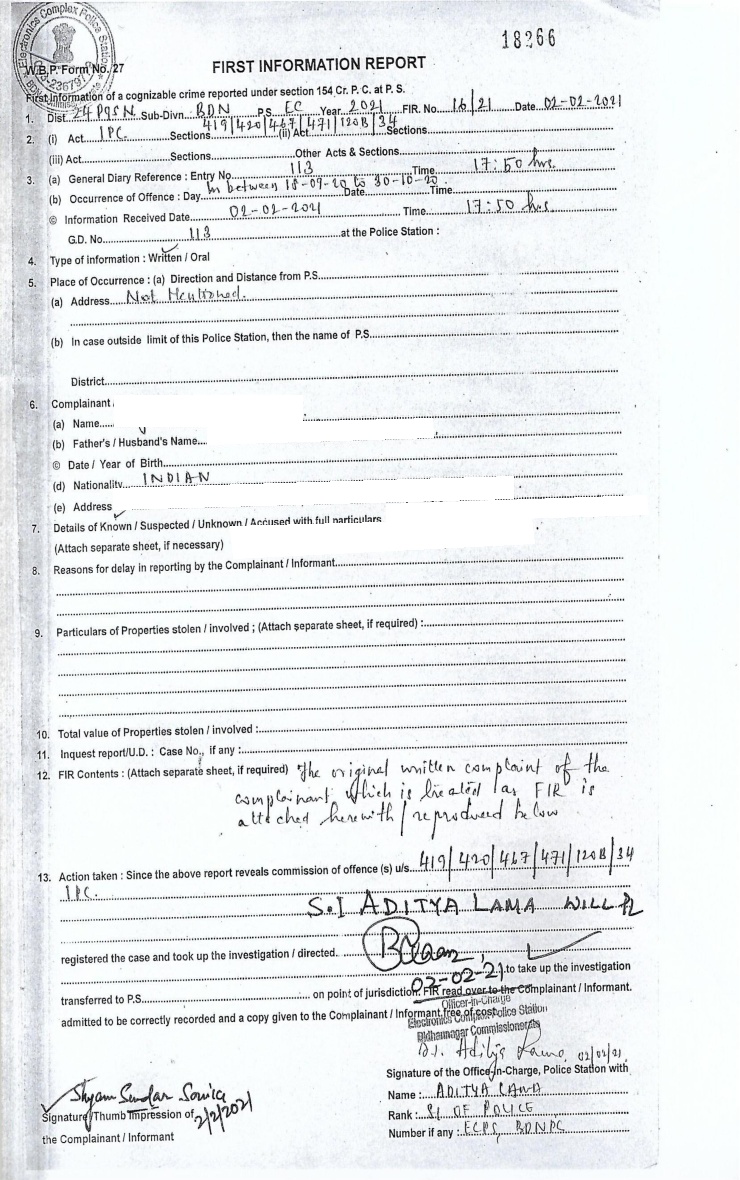 Electronics Complex Police Station
18266
W.B.P. Form No. 27
FIRST INFORMATION REPORT
First Information of a cognizable crime reported under section 154 Cr. P. C. at P. S.
1. Dist. 24 PGS N Sub-Divn. BDN P.S. EC Year 2021 FIR. No. 16/21 Date 02-02-2021
2. (i) Act. IPC. Sections 419/420/467/471/120B/34 (ii) Act Sections
(iii) Act Sections Other Acts & Sections
3. (a) General Diary Reference : Entry No. 113 Time 17:50 hrs.
(b) Occurrence of Offence : Day In between 18-09-20 to 30-10-20 Date Time
© Information Received Date 02-02-2021 Time 17:50 hrs
G.D. No. 113 at the Police Station :
4. Type of information : Written / Oral
5. Place of Occurrence : (a) Direction and Distance from P.S.
(a) Address Not Mentioned.
(b) In case outside limit of this Police Station, then the name of P.S.
District
6. Complainant
(a) Name
(b) Father's / Husband's Name
© Date / Year of Birth
(d) Nationality INDIAN
(e) Address
7. Details of Known / Suspected / Unknown / Accused with full particulars
(Attach separate sheet, if necessary)
8. Reasons for delay in reporting by the Complainant / Informant
9. Particulars of Properties stolen / involved ; (Attach separate sheet, if required) :
10. Total value of Properties stolen / involved :
11. Inquest report/U.D. : Case No., if any :
12. FIR Contents : (Attach separate sheet, if required) The original written complaint of the
complainant, which is treated as FIR is
attached herewith / reproduced below
13. Action taken : Since the above report reveals commission of offence (s) u/s. 419/420/467/471/120B/34
IPC.
S.I ADITYA LAMA WILL
registered the case and took up the investigation / directed.
02-02-21 to take up the investigation
transferred to P.S. on point of jurisdiction. FIR read over to the Complainant / Informant.
admitted to be correctly recorded and a copy given to the Complainant / Informant free of cost
Officer-in-Charge
Electronics Complex Police Station
Bidhannagar Commissionerate
S.I. Aditya Lama 02/02/21
Signature of the Office-in-Charge, Police Station with
Name : ADITYA LAMA
Rank : SI OF POLICE
Number if any : ECPS, BDNPC
Shyam Sundar Sonica
Signature/Thumb Impression of 2/2/2021
the Complainant / Informant